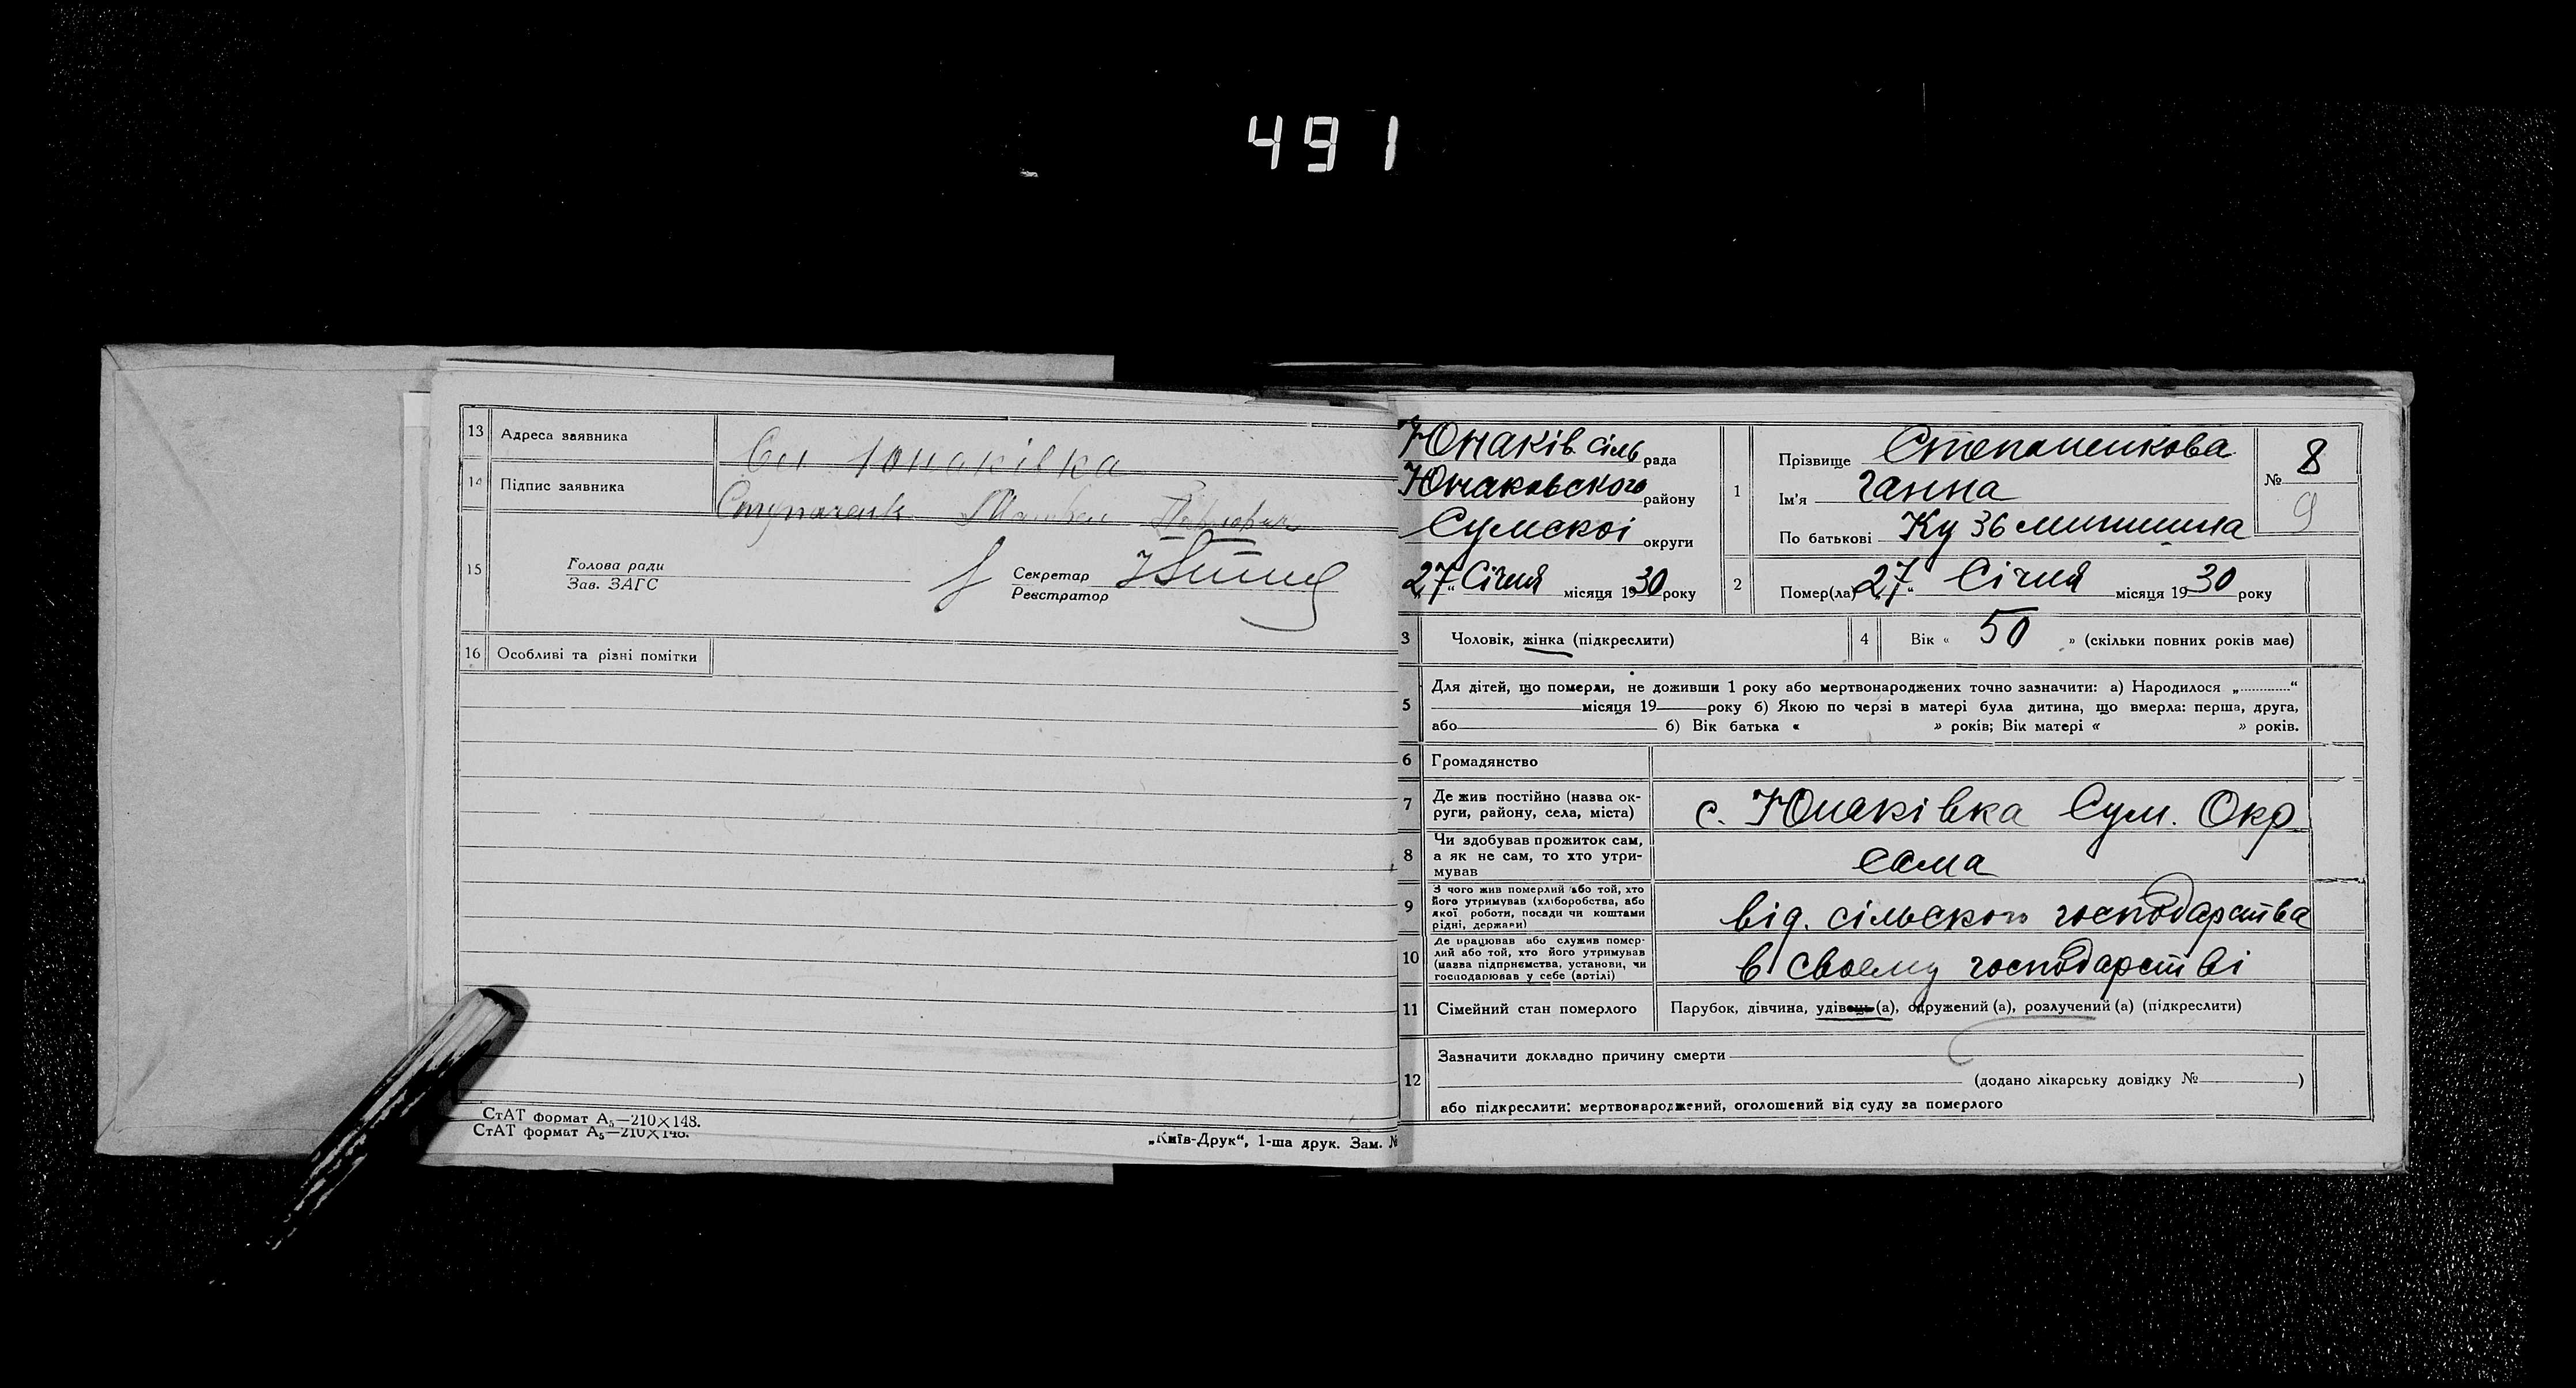 491
13 Адреса заявника Сел Юнаківка
14 Підпис заявника
15 Голова ради
Зав. ЗАГС
Секретар
Реєстратор
16 Особливі та різні помітки
СтАТ формат А5—210×148.
СтАТ формат А5—210×148.
„Київ-Друк“, 1-ша друк. Зам. №
Юнаків. сіль рада
Юнаковского району
Сумскої округи
„27“ Січня місяця 1930 року
1 Прізвище Степаненкова
Ім'я Ганна
По батькові Кузьминишна
№ 8
9
2 Помер(ла) „27“ Січня місяця 1930 року
3 Чоловік, жінка (підкреслити)
4 Вік « 50 » (скільки повних років має)
5 Для дітей, що померли, не доживши 1 року або мертвонароджених точно зазначити: а) Народилося „............“
місяця 19 року б) Якою по черзі в матері була дитина, що вмерла: перша, друга,
або б) Вік батька « » років; Вік матері « » років.
6 Громадянство
7 Де жив постійно (назва ок-
руги, району, села, міста)
с. Юнаківка Сум. Окр
8 Чи здобував прожиток сам,
а як не сам, то хто утри-
мував
сама
9 З чого жив померлий або той, хто
його утримував (хліборобства, або
якої роботи, посади чи коштами
рідні, держави)
від. сільского господарства
10 Де працював або служив помер-
лий або той, хто його утримував
(назва підприємства, установи, чи
господарював у себе (артілі)
в своему господарстві
11 Сімейний стан померлого Парубок, дівчина, удівець (а), одружений (а), розлучений (а) (підкреслити)
12 Зазначити докладно причину смерти
(додано лікарську довідку № )
або підкреслити: мертвонароджений, оголошений від суду за померлого